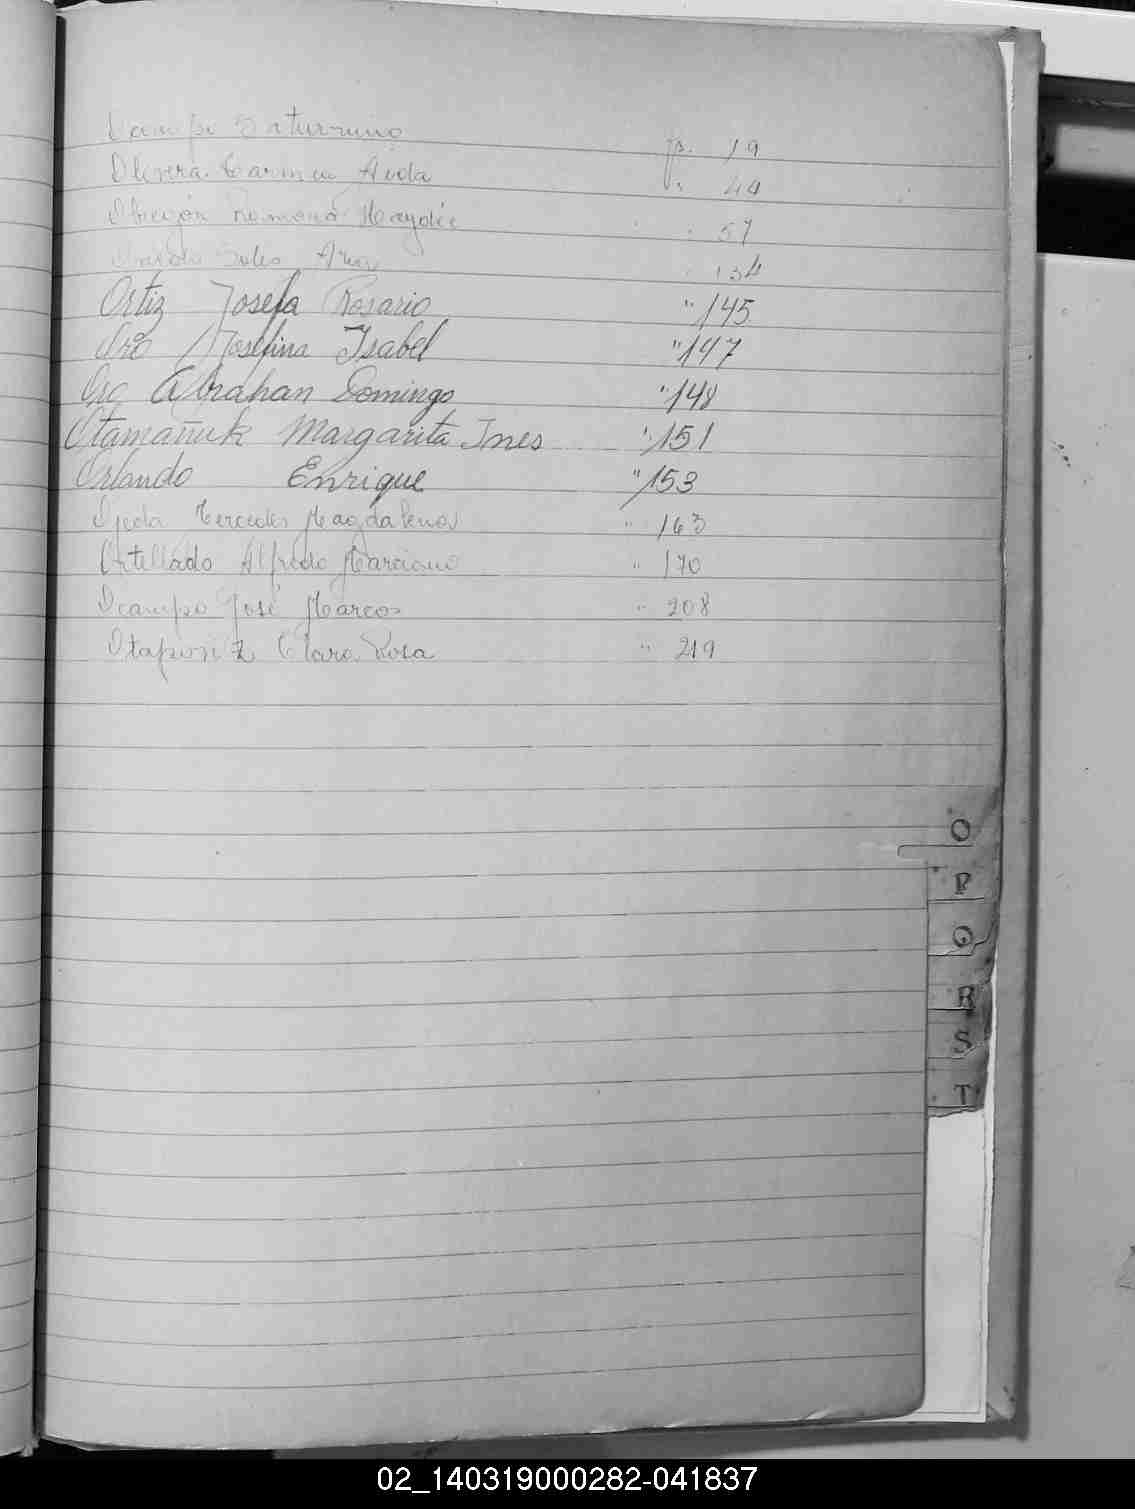 Ocampo Saturnino fs. 19
Olivera Carmen Aida " 44
Obregón Ramona Haydée " 57
" 134
Ortiz Josefa Rosario " 145
Oro Josefina Isabel " 147
Oro Abrahan Domingo " 148
Otamañuk Margarita Ines " 151
Orlando Enrique " 153
Ojeda Mercedes Magdalena " 163
Ortellado Alfredo Marciano " 170
Ocampo José Marcos " 208
Clara Rosa " 219
O
P
Q
R
S
T
02_140319000282-041837